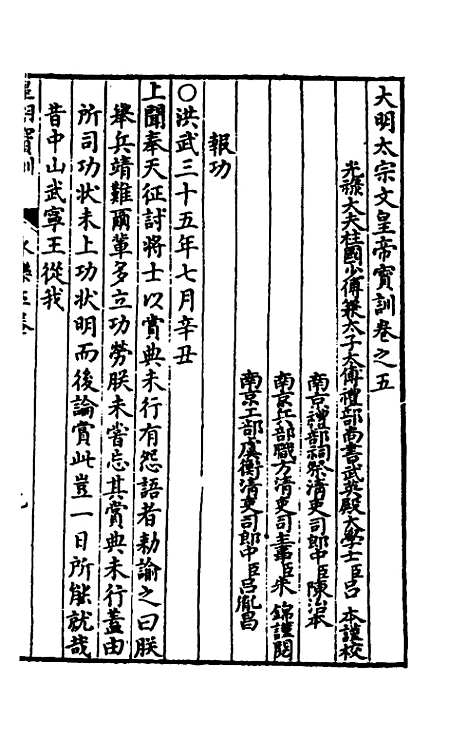 大明太宗文皇帝寳訓卷之五
光祿大夫柱國少傅兼太子太傅禮部尚書武英殿大學士臣吕 本謹校
南京禮部祠祭清吏司郎中臣陳治本
南京兵部職方清吏司主事臣朱 錦謹閱
南京工部虞衡清吏司郎中臣吕胤昌
報功
〇洪武三十五年七月辛丑
上聞奉天征討將士以賞典未行有怨語者勅諭之曰朕
舉兵靖難爾軰多立功勞朕未嘗忘其賞典未行蓋由
所司功状未上功状明而後論賞此豈一日所能就哉
昔中山武寧王從我